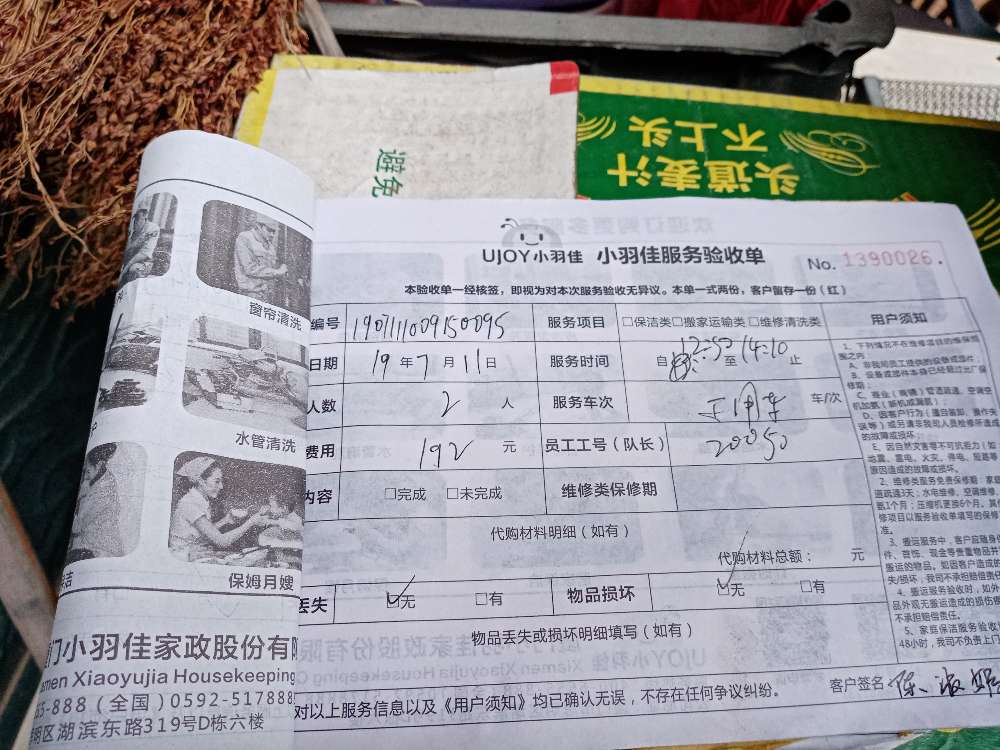 不上头
头道麦汁
避免
UJOY小羽佳 小羽佳服务验收单
No. 1390026.
本验收单一经核签，即视为对本次服务验收无异议。本单一式两份，客户留存一份（红）
编号 190711009150095 服务项目 □保洁类□搬家运输类□维修清洗类
日期 19年7月11日 服务时间 自 12:50 至 14:10 止
人数 2 人 服务车次 车/次
费用 192 元 员工工号（队长） 20050
内容 □完成 □未完成 维修类保修期
代购材料明细（如有）
代购材料总额： 元
丢失 ☑无 □有 物品损坏 ☑无 □有
物品丢失或损坏明细填写（如有）
对以上服务信息以及《用户须知》均已确认无误，不存在任何争议纠纷。
客户签名
用户须知
1、下列情况不在维修项目的维保范
围之内：
A、非我司员工提供的设备或部件；
B、设备或部件本身已经超过出厂保
修期；
D、因客户行为（擅自装卸、操作失
误等）或另请非我司人员检修所造成
的故障或损坏；
地震、雷电、水灾、停电、
原因造成的故障或损坏。
2、维修类服务免费保修期：家庭
道疏通3天；水电维修、空调维修、
氨1个月；压缩机更换6个月。其
修项目以服务验收单填写的保修
准。
3、搬运服务中，客户应随身
件、首饰、现金等贵重物品并
搬运的物品。如因客户造成的
失/损坏，我司不承担赔偿责
4、搬运服务验收时，如外
品外观无搬运造成的损伤
不承担赔偿责任。
5、家庭保洁服务验收
48小时，我司不负责上门
窗帘清洗
水管清洗
保姆月嫂
门小羽佳家政股份有限
men Xiaoyujia Housekeeping
-888（全国）0592-517888
明区湖滨东路319号D栋六楼